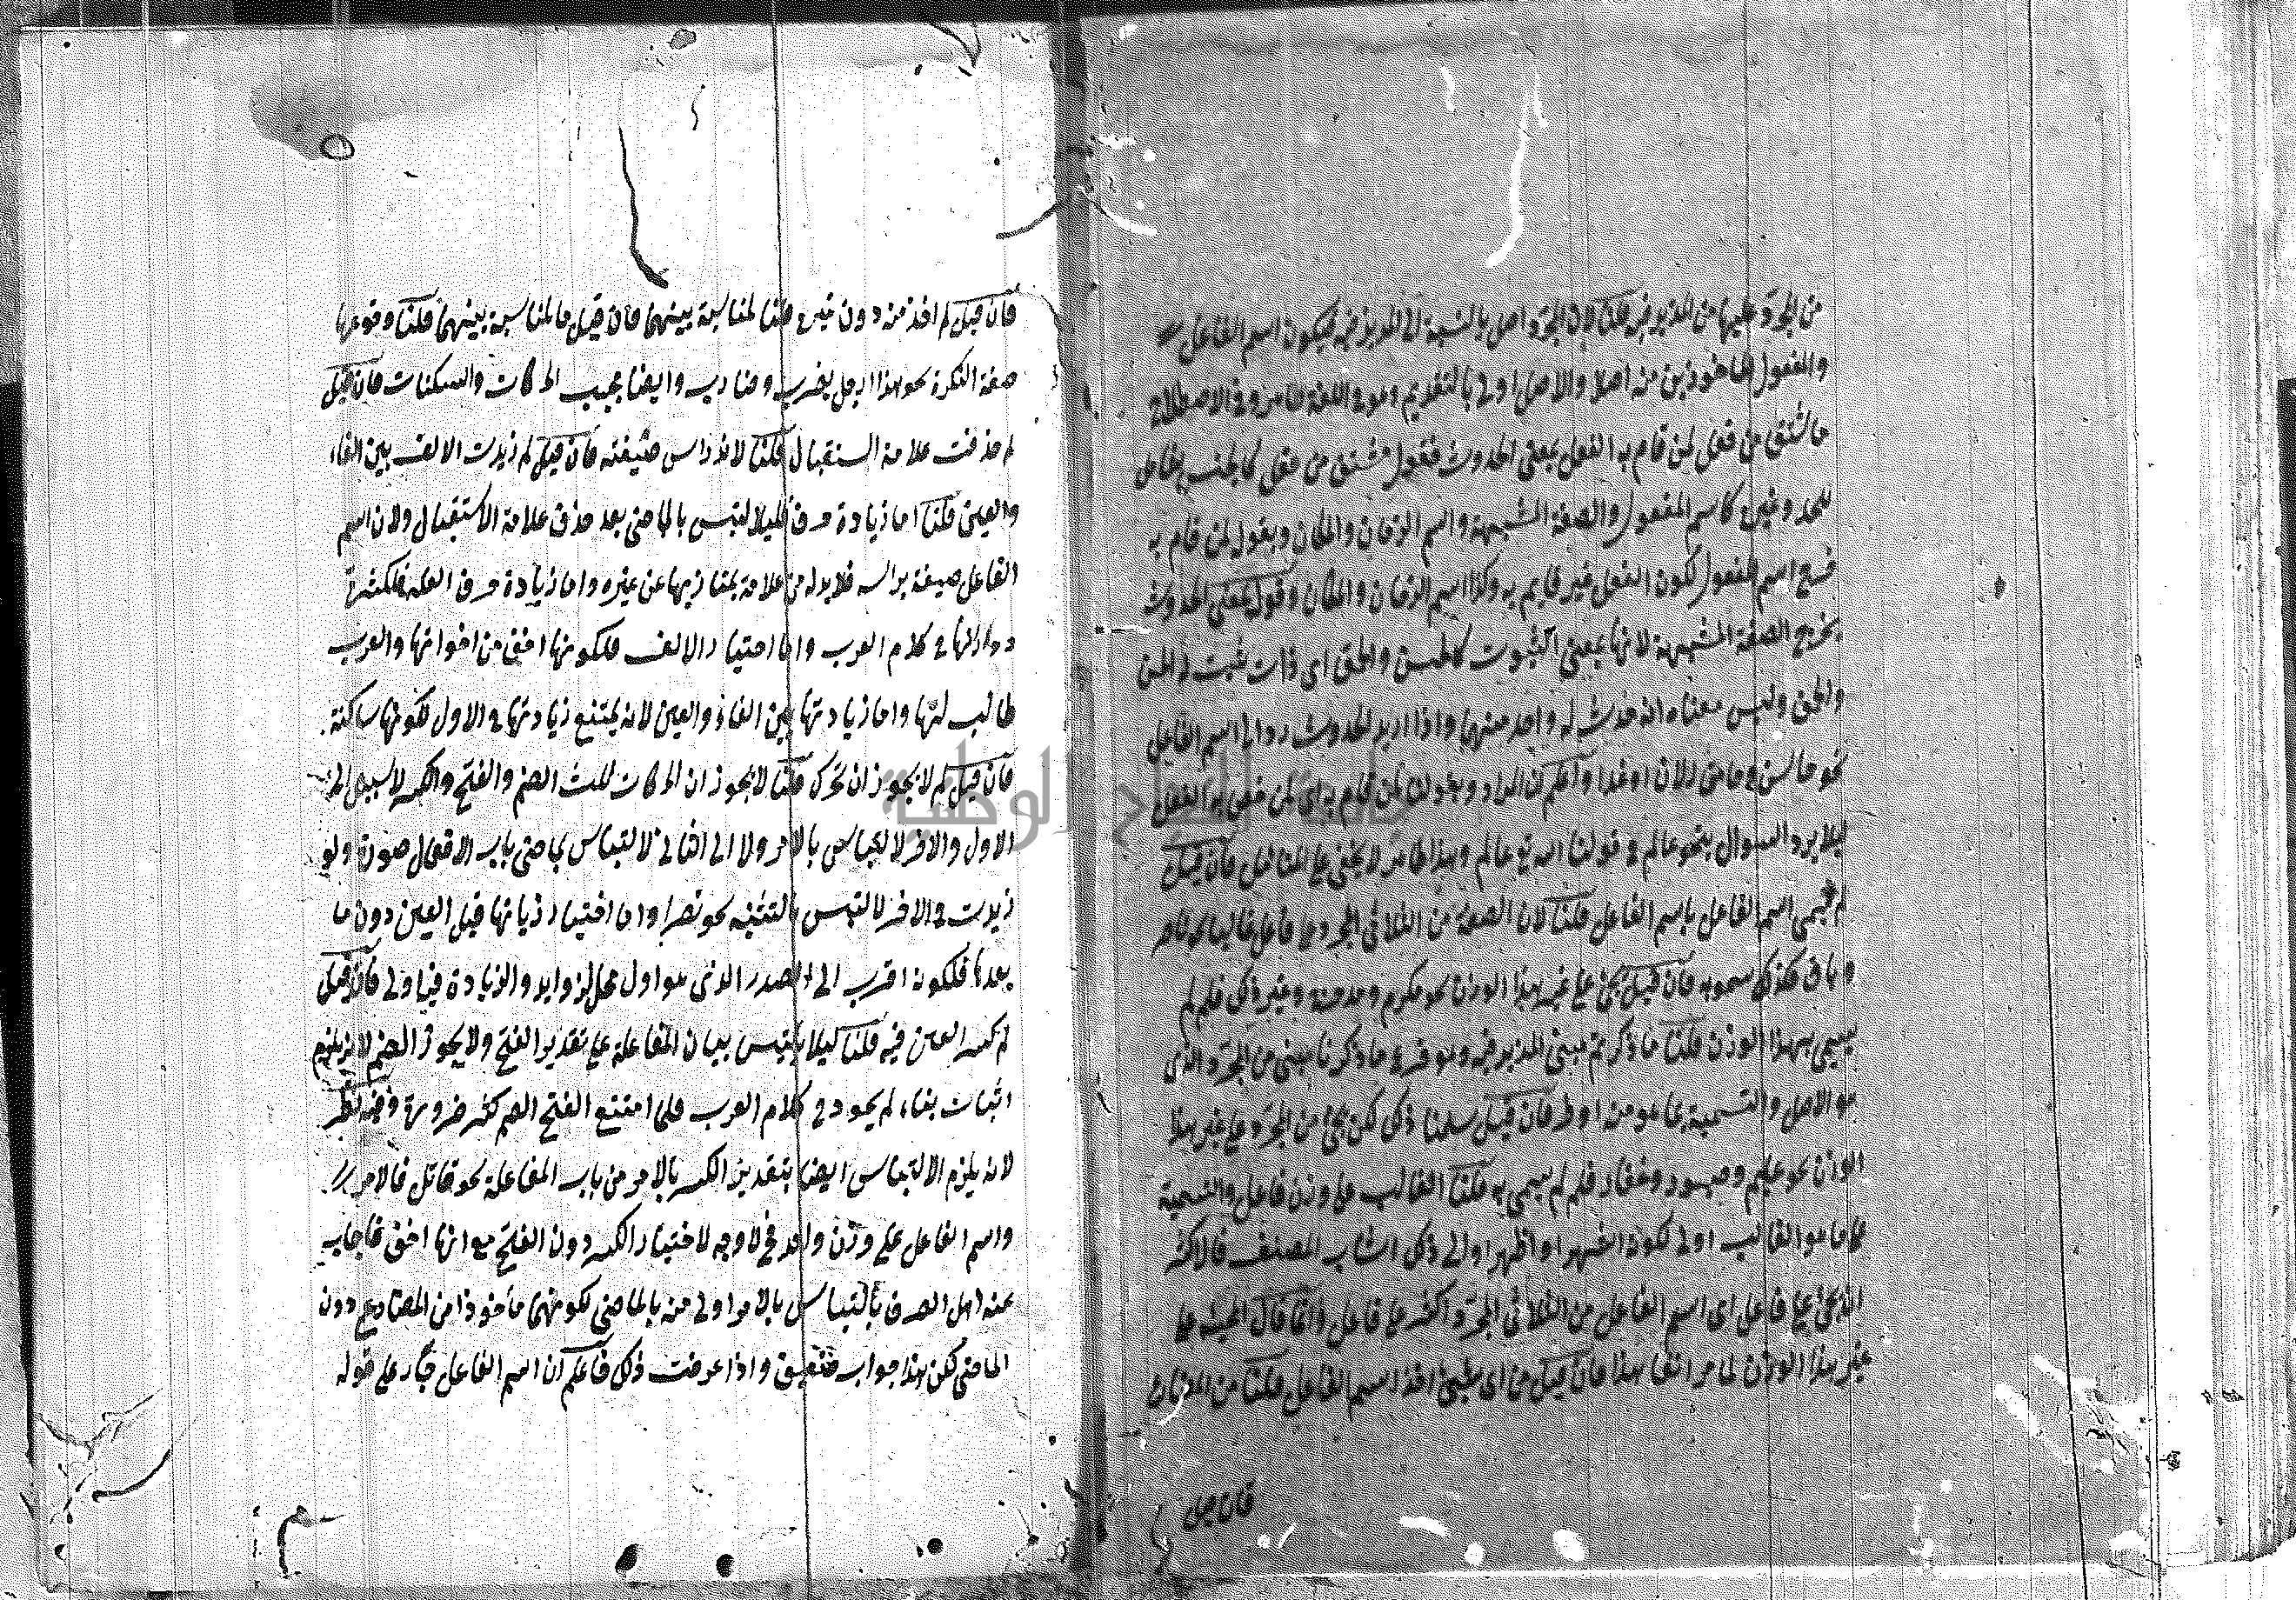 من المجرد عليها من المزيد فيه قلنا لان المجرد اصل بالنسبة الى المزيد فيه فيكون اسم الفاعل
والمفعول الماخوذين منه اصلا والاصل اولى بالتقديم وهو في اللغة ما مر وفي الاصطلاح
ما اشتق من فعل لمن قام به الفعل بمعنى الحدوث فقوله مشتق من فعل كالجنس شامل
للحد وغيره كاسم المفعول والصفة المشبهة واسم الزمان والمكان وبقوله لمن قام به
خرج اسم المفعول لكون الفعل غير قايم به وكذا اسم الزمان والمكان وقوله بمعنى الحدوث
يخرج الصفة المشبهة لانها بمعنى الثبوت كالحسن والحق اى ذات ثبت له الحسن
والحق وليس معناه انه حدث له واحد منهما واذا اريد الحدوث رد الى اسم الفاعل
نحو حاسن في ماضي الان او غدا واعلم ان المراد وبقوله لمن قام به اى لمن فعل به الفعل
ليلا يرد السوال بنحو عالم في قولنا الله تع عالم وهذا لا يخفى على المتامل فان قيل
لم سمى اسم الفاعل باسم الفاعل قلنا لان الصفة من الثلاثى المجرد على فاعل غالبا
فلذلك سموه فان قيل يجئ على غير هذا الوزن نحو مكرم ومدحرج وغير ذلك فلم لم
يسمى بهذا الوزن قلنا ما ذكرتم مبنى المزيد فيه وهو فرع ما ذكرنا مبنى من المجرد الذى
هو الاصل والتسمية بما هو منه اولى فان قيل سلمنا ذلك لكن يجئ من المجرد على غير هذا
الوزن نحو عليم وصبور وغفار فلم لم يسمى به قلنا الغالب على وزن فاعل والتسمية
بما هو الغالب اولى لكونه اشهر او اظهر او الى ذلك اشار المصنف فالاكثر
ان يجئ على فاعل اى اسم الفاعل من الثلاثى المجرد اكثر على فاعل وانما قال المجيئه على
غير هذا الوزن لما مر انفا هذا فان قيل من اى شئ اخذ اسم الفاعل قلنا من المضارع
فان قيل
فان قيل لم اخذ منه دون غيره قلنا لمناسبة بينهما فان قيل ما المناسبة بينهما قلنا وقوعها
صفة النكرة نحو هذا الرجل يضرب وضارب وايضا بحسب الحركات والسكنات فان قيل
لم حذفت علامة الستقبال قلنا لانه راس صيغته فان قيل لم زيدت الالف بين الفاء
والعين قلنا اما زيادة حرف ليلا لتبس بالماضى بعد حذف علامة الاستقبال ولان اسم
الفاعل صيغة براسه فلابد له من علامة يمتاز بها عن غيره واما زيادة حرف العلة فلكثرة
دورانها في كلام العرب واما اختيار الالف فلكونها اخف من اخواتها والعرب
طالب لتها واما زيادتها بين الفاء والعين لانه يمتنع زيادتها في الاول لكونها ساكنة
فان قيل لم لا يجوز ان تحرك قلنا لا يجوز ان الحركات ثلث الضم والفتح والكسر لا سبيل الى
الاول والاخر لالتباس بالامر ولا الى الثانى لالتباس بماضى باب الافعال صورة ولو
زيدت في الاخر لا لتبس بالتثنيه نحو نصرا واما اختيار زياتها قبل العين دون ما
بعدها فلكونه اقرب الى الصدر الذى هو اول محل لزوايد والزيادة فيها ولى فان قيل
لم كسر العين فيه قلنا ليلا يلتبس ببيان المفاعلة على تقدير الفتح ولا يجوز الضم لانه يلزم
اثبات بناء لم يجود في كلام العرب فلما امتنع الفتح الضم كسر ضرورة وفيه نظر
لانه يلزم الالتباس ايضا بتقدير الكسر بالامر من باب المفاعلة نحو قاتل فالامر
واسم الفاعل على وزن واحد فح لا وجه لاختيار الكسر دون الفتح مع انها اخف فاجاب
عنه اهل الصرف بالتباس بالامر اولى منه بالماضى لكونهما ماخوذا من المضارع دون
الماضى لكن هذا جواب ضعيف واذا عرفت ذلك فاعلم ان اسم الفاعل على قوله
دار الوطنية